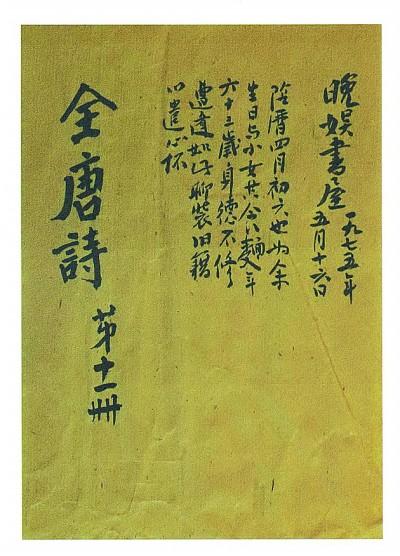 晚娱書屋
一九七五年
五月十六日
陰曆四月初六也为余
生日与小女共食麵年
六十三歲身德不修
遭逢如此聊裝旧籍
以遣心怀
全唐詩 第十一冊